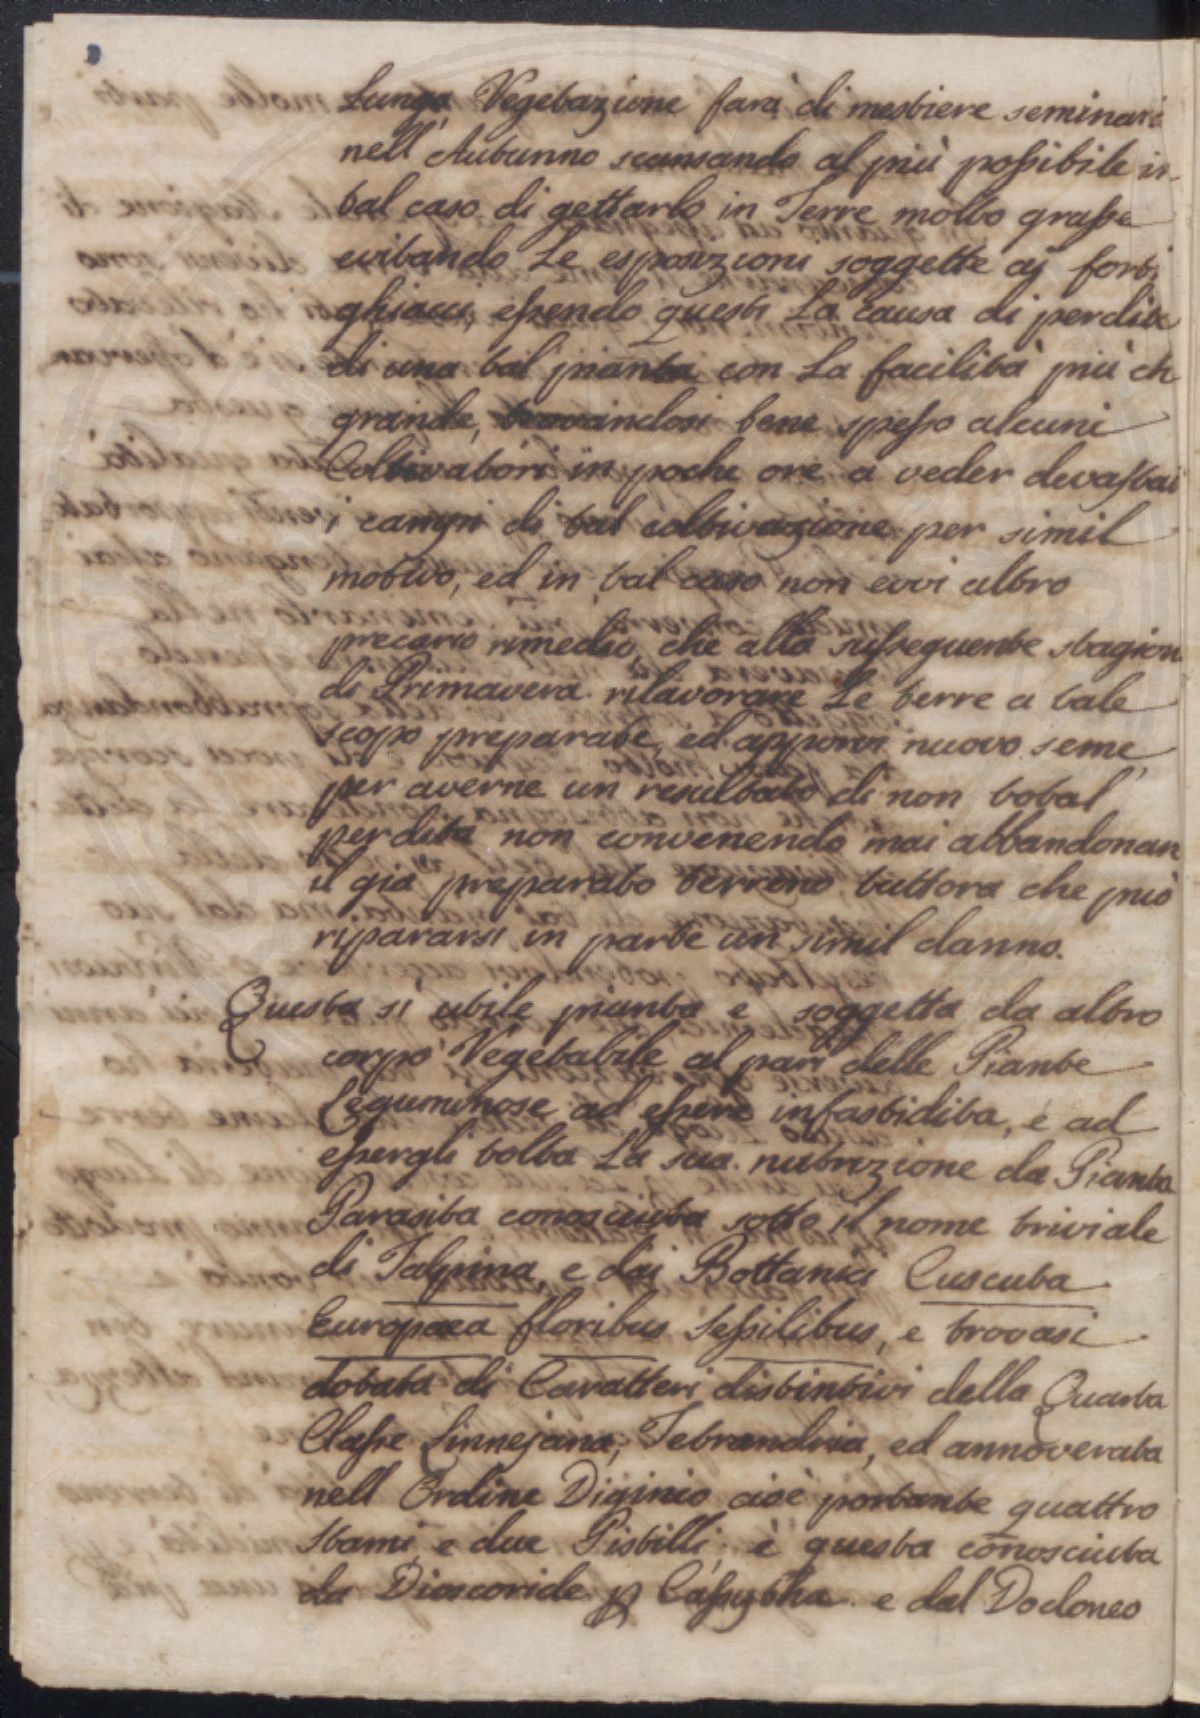 Lunga Vegetazione farà di mestiere seminari
nell'Autunno scansando al più possibile in
tal caso di gettarlo in Terre molto grasse
evitando Le esposizioni soggette aj forti
ghiacci, essendo questi La causa di perdite
di una tal pianta con La facilità più ch
grande, trovandosi bene spesso alcuni
Coltivatori in poche ore a veder devastati
i campi di tal coltivazione per simil
motivo, ed in tal caso non evvi altro
precario rimedio, che alla susseguente stagion
di Primavera rilavorare Le terre a tale
scopo preparate, ed apporvi nuovo seme
per averne un resultato di non total'
perdita non convenendo mai abbandonare
il già preparato terreno tuttora che può
ripararsi in parte un simil danno.
Questa sì utile pianta e soggetta da altro
corpo Vegetabile al pari delle Piante
Leguminose ad essere infastidita, e ad
essergli tolta La sua nutrizione da Pianta
Parasita conosciuta sotto il nome triviale
di Talpina, e dai Bottanici Cuscuta
Europaea floribus sessilibus, e trovasi
dotata di Caratteri distintivi della Quarta
Classe Linnejana, Tetrandria, ed annoverata
nell Ordine Diginio cioè portante quattro
stami e due Pistilli; è questa conosciuta
da Dioscoride p Cassytha e dal Dodoneo